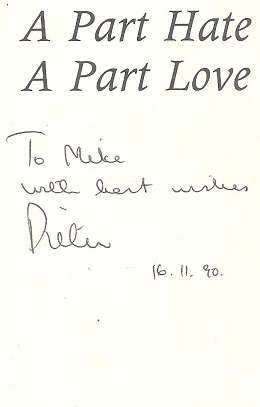 A Part Hate
A Part Love
To Mike
with best wishes
Pieter
16.11.90.